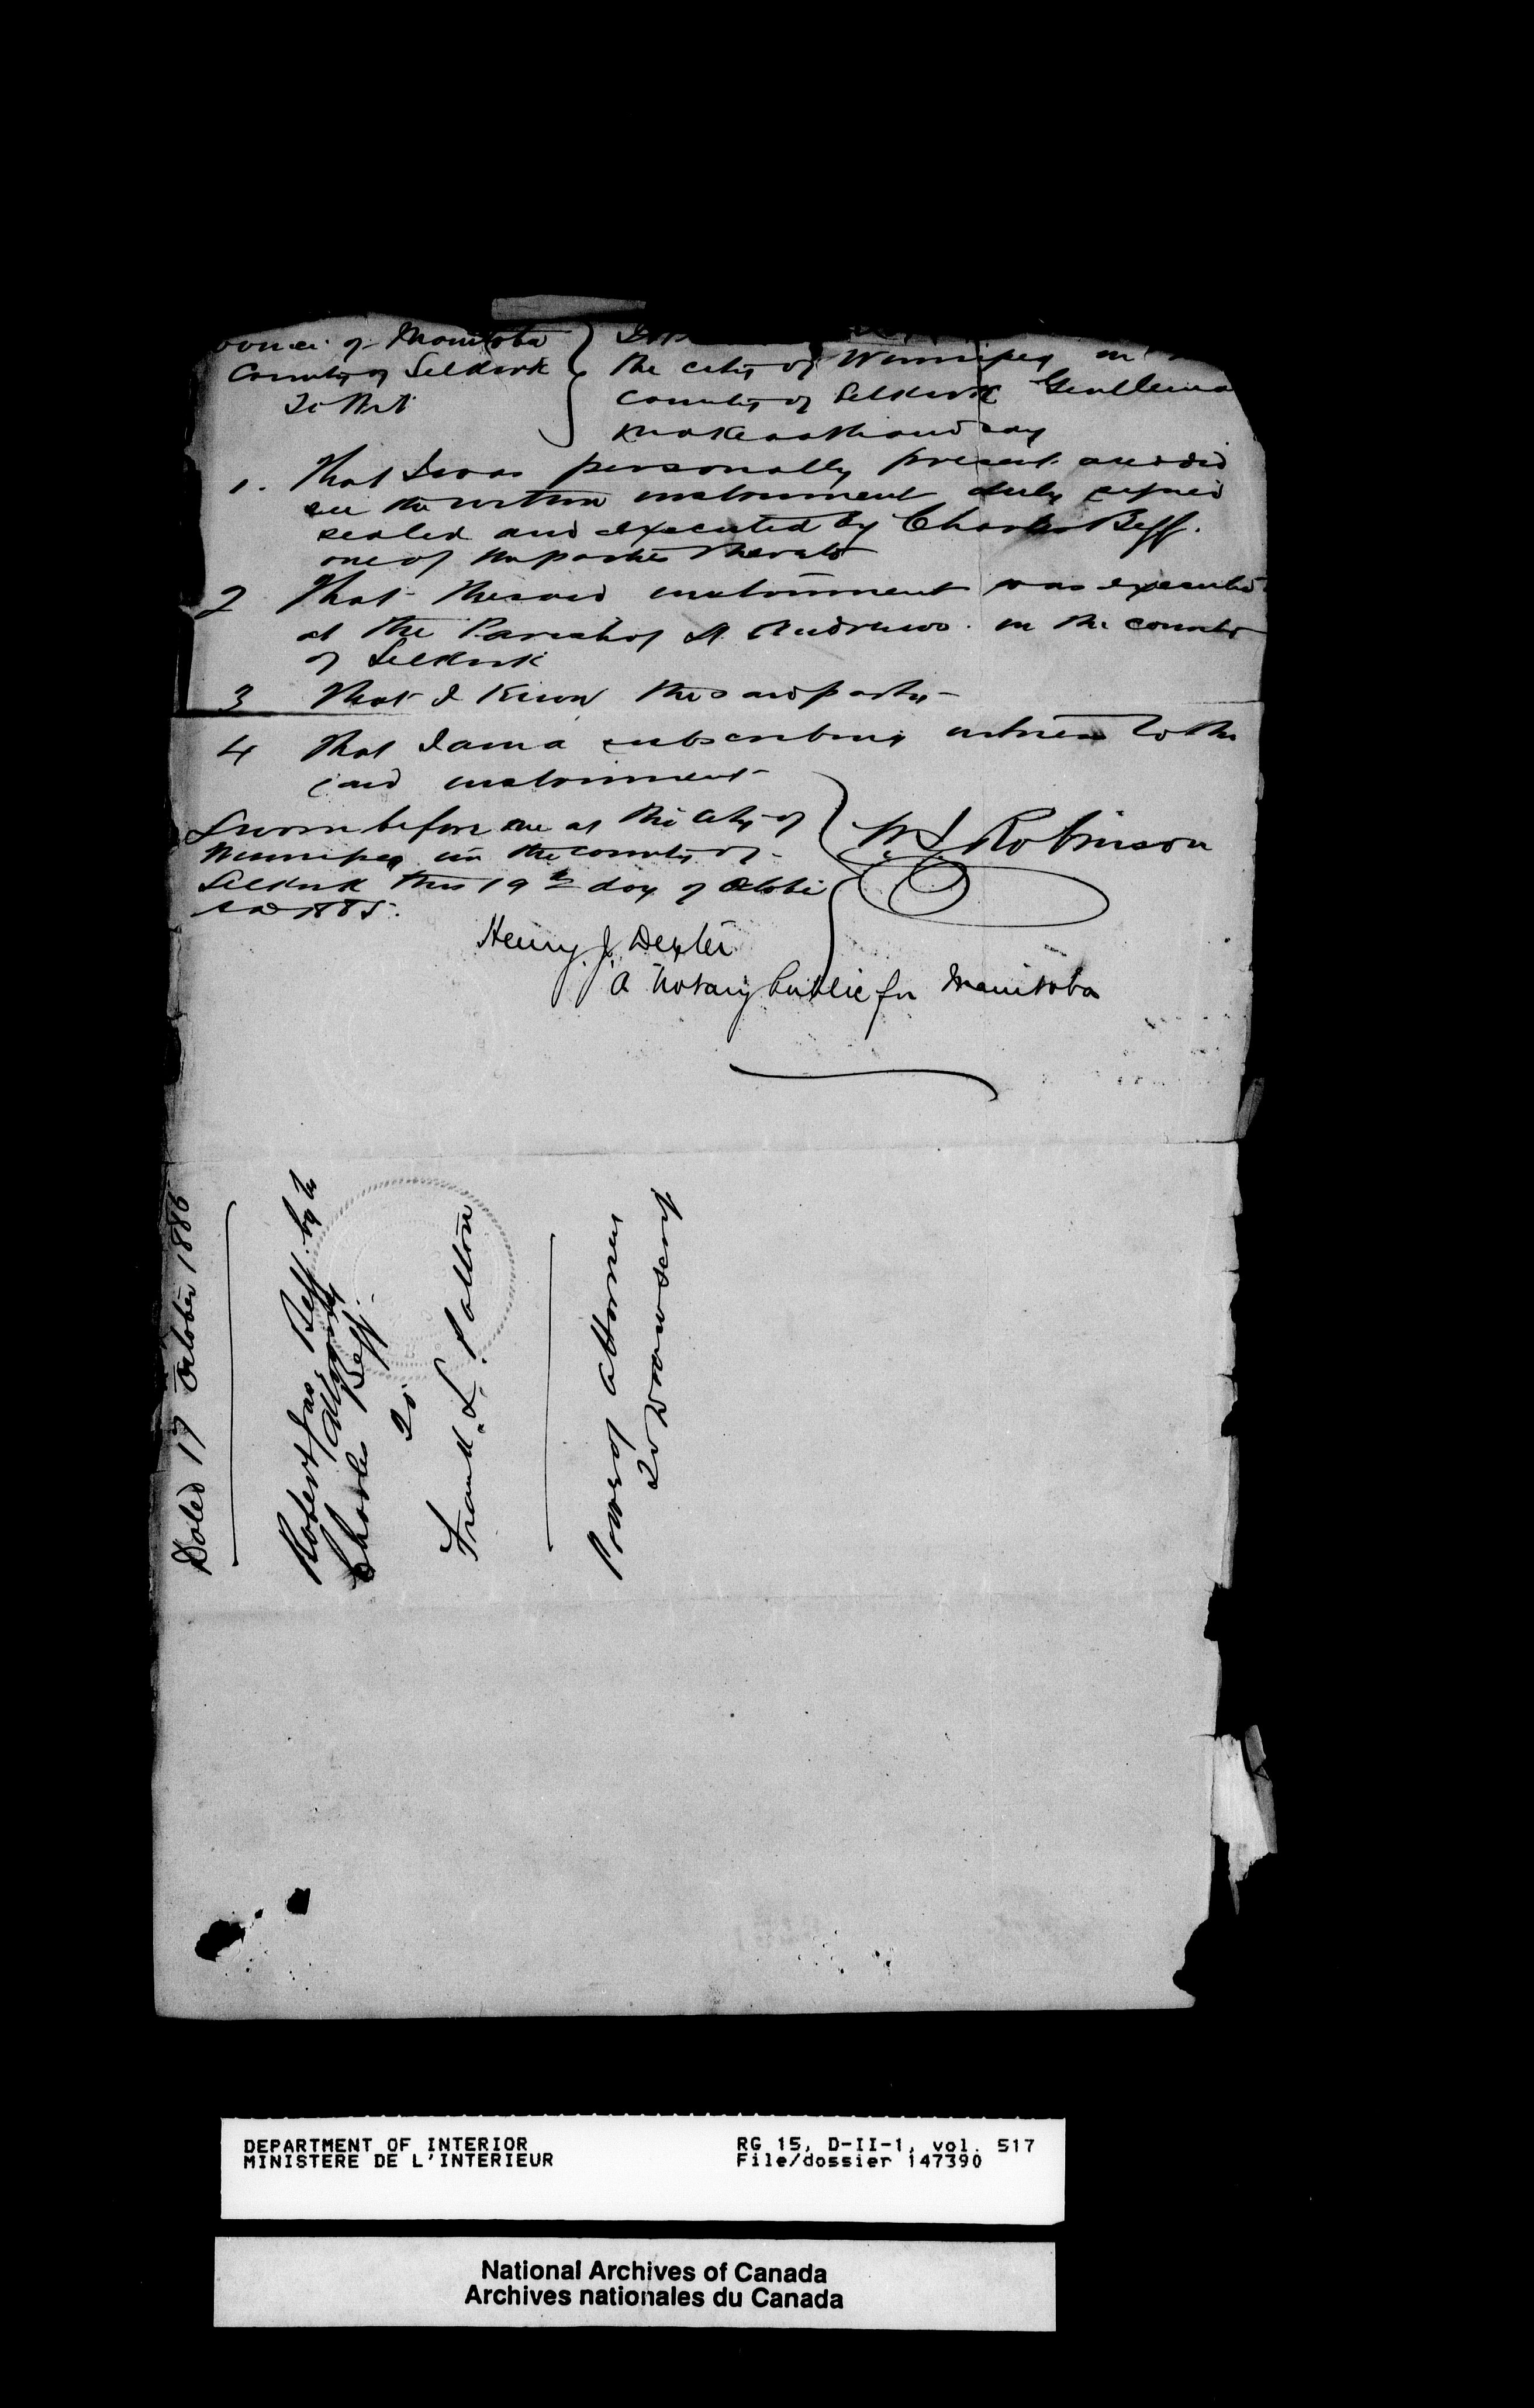 of Manitoba
County of Selkirk
To Wit
the city of Winnipeg in
County of Selkirk Gentleman
make oath and say
1. That I was personally present and did
see the within instrument duly signed
sealed and executed by Charles Beff.
one of the parties thereto
2 That the said instrument was executed
at the Parish of St Andrews. in the county
of Selkirk
3 That I know the said party
4 That I am a subscribing witness to the
said instrument
Sworn before me at the city of
Winnipeg in the county of
Selkirk this 19th day of October
AD 1885.
Robinson
Henry J. Dexter
A Notary Public for Manitoba
Dated 17 October 1885
Robert Jas. Beff by his
Attorney
Charles Beff.
To
Frank L. Patton
Power of Attorney
To Draw Scrip
DEPARTMENT OF INTERIOR
MINISTERE DE L'INTERIEUR
RG 15, D-II-1, vol. 517
File/dossier 147390
National Archives of Canada
Archives nationales du Canada